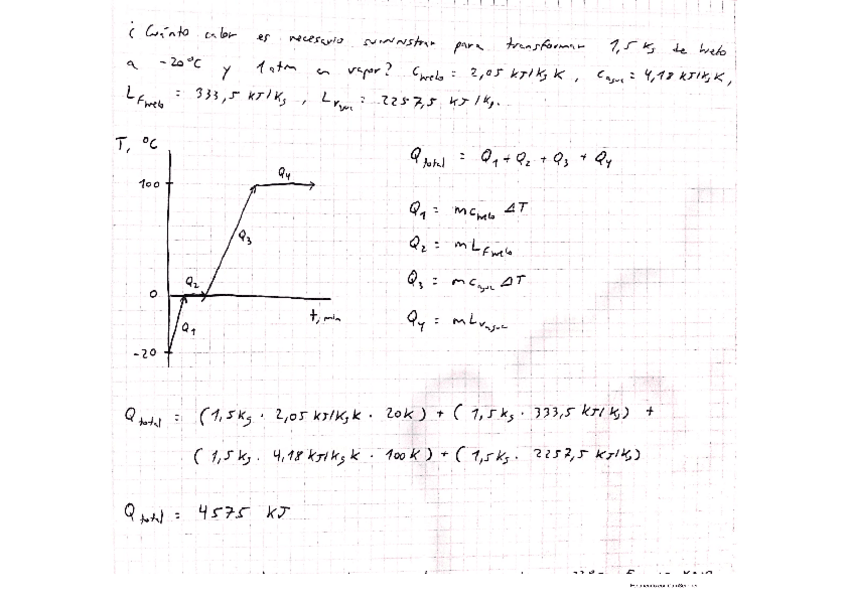 ¿ Cuánto calor es necesario suministrar para transformar 1,5 kg de hielo
a -20°C y 1 atm en vapor? C hielo = 2,05 kJ/kg K , C agua = 4,18 kJ/kg K,
L F hielo = 333,5 kJ/kg , L V agua = 2257,5 kJ/kg.
T, °C
100
0
-20
Q1
Q2
Q3
Q4
t, min
Q total = Q1 + Q2 + Q3 + Q4
Q1 = m C hielo ΔT
Q2 = m L F hielo
Q3 = m C agua ΔT
Q4 = m L V agua
Q total = (1,5 kg · 2,05 kJ/kg K · 20K) + (1,5 kg · 333,5 kJ/kg) +
(1,5 kg · 4,18 kJ/kg K · 100K) + (1,5 kg · 2257,5 kJ/kg)
Q total = 4575 kJ